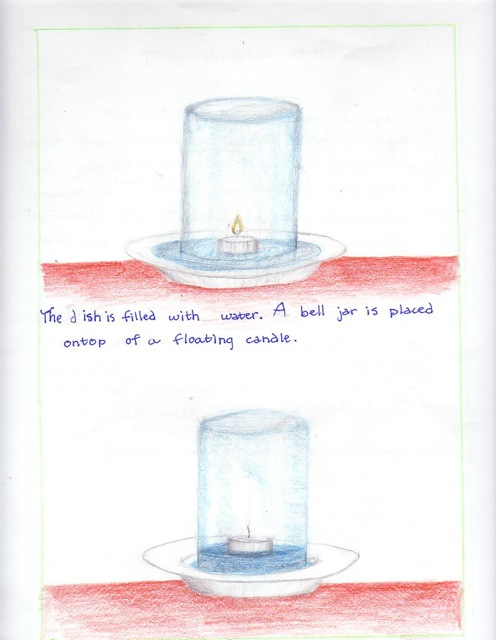 The dish is filled with water. A bell jar is placed
ontop of a floating candle.